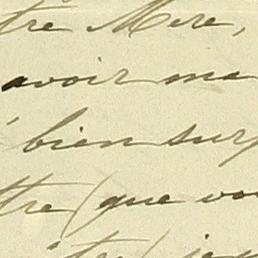 tre Mere,
avoir ma
bien surp
ttre (que vou